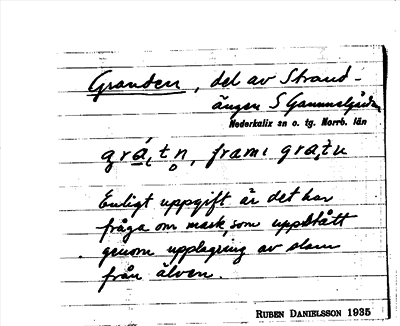 Granden, del av Strand-
ängen S Gammelgården
Nederkalix sn o. tg. Norrb. län
grátn, frami gratu
Enligt uppgift är det här
fråga om mark, som uppstått
genom upplagring av slam
från älven.
RUBEN DANIELSSON 1935